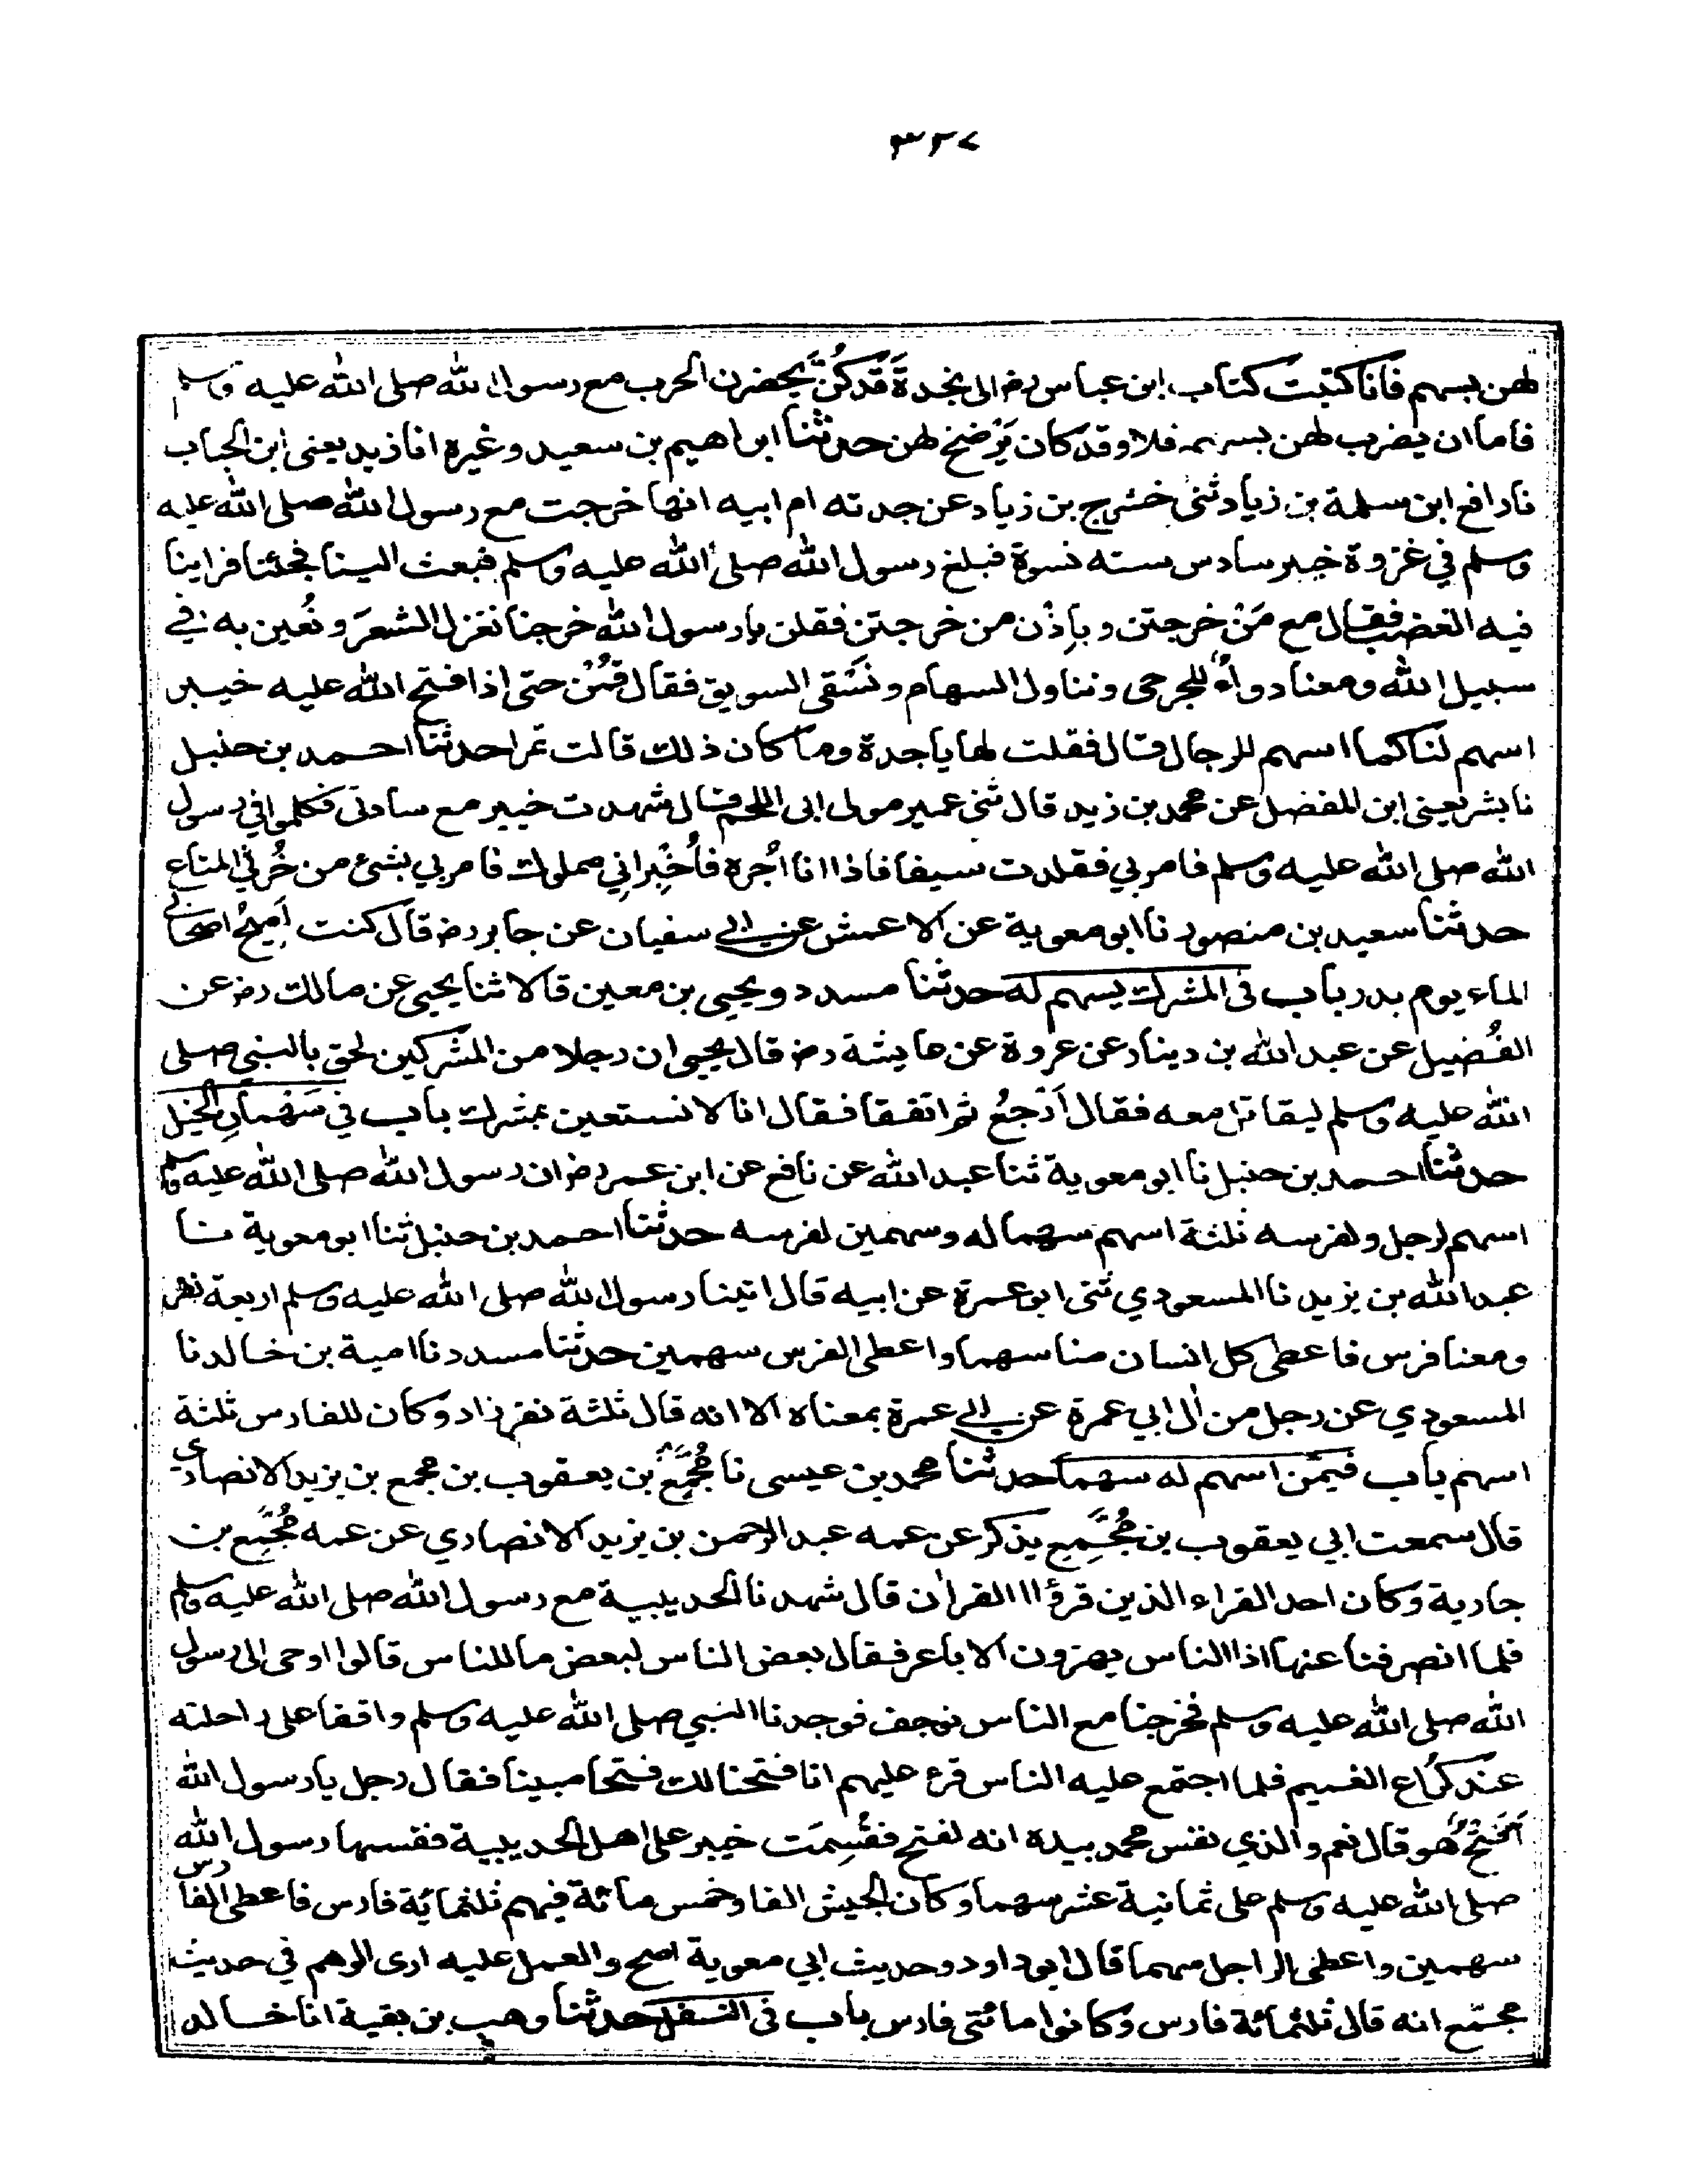 ٣٢٧
لهن بسهم فانا كتبت كتاب ابن عباس رضـ الى نجدة قَدْ كُنَّ يَحضرن الحرب مع رسول الله صلى الله عليه وسلم
فاما ان يضرب لهن بسهم فلا وقد كان يَرْضخ لهن حدثنا ابراهيم بن سعيد وغيره انا زيد يعنى ابن الحباب
نا رافع ابن سلمة بن زياد ثنى حشرج بن زياد عن جدته ام ابيه انها خرجت مع رسول الله صلى الله عليه
وسلم في غزوة خيبر سادس سته نسوة فبلغ رسول الله صلى الله عليه وسلم فبعث الينا فجئنا فراينا
فيه الغضب فقال مع مَنْ خرجتن وبِاِذْن من خرجتن فقلن يا رسول الله خرجنا نغزل الشعرَ ونُعين به في
سبيل الله ومعنا دواءٌ للجرحى ونناول السهام ونَسْقى السويق فقال قُمْن حتى اذا فتح الله عليه خيبر
اسهم لنا كما اسهم للرجال قال فقلت لها يا جدة وما كان ذلك قالت تمرا حدثنا احمد بن حنبل
نا بشر يعنى ابن المفضل عن محمد بن زيد قال ثنى عمير مولى ابى اللحم قال شهدت خيبر مع سادتى فكلموا في رسول
الله صلى الله عليه وسلم فامر بي فقلدت سيفا فاذا انا اجُره فاُخْبِر اني مملوك فامر بي بشئ من خُرثي المتاع
حدثنا سعيد بن منصور نا ابو معوية عن الاعمش عن ابي سفيان عن جابر رضـ قال كنت اَمِيحُ اصحابي
الماء يوم بدر باب فى المشرك يسهم له حدثنا مسدد ويحيى بن معين قالا ثنا يحيى عن مالك رضـ عن
الفُضيل عن عبد الله بن دينار عن عروة عن عايشة رضـ قال يحيى ان رجلا من المشركين لحق بالنبي صلى
الله عليه وسلم ليقاتل معه فقال اَرْجعُ ثم اتفقا فقال انا لا نستعين بمشرك باب في سَهْمانِ الخيل
حدثنا احمد بن حنبل نا ابو معوية ثنا عبد الله عن نافع عن ابن عمر رضـ ان رسول الله صلى الله عليه وسلم
اسهم لرجل ولفرسه ثلثة اسهم سهما له وسهمين لفرسه حدثنا احمد بن حنبل ثنا ابو معوية نا
عبد الله بن يزيد نا المسعودي ثنى ابو عمرة عن ابيه قال اتينا رسول الله صلى الله عليه وسلم اربعة نفر
ومعنا فرس فاعطى كل انسان منا سهما واعطى الفرس سهمين حدثنا مسدد نا امية بن خالد نا
المسعودي عن رجل من اٰل ابي عمرة عن ابي عمرة بمعناه الا انه قال ثلثة نفر زاد وكان للفارس ثلثة
اسهم باب فيمَن اسهم له سهما حدثنا محمد بن عيسى نا مُجَمِّعُ بن يعقوب بن مجمع بن يزيد الانصاري
قال سمعت ابي يعقوب بن مُجَمِّع يذكر عن عمه عبد الرحمن بن يزيد الانصاري عن عمه مُجَمِّع بن
جارية وكان احد القراء الذين قرؤا ا القراٰن قال شهدنا الحديبية مع رسول الله صلى الله عليه وسلم
فلما انصرفنا عنها اذا الناس يهزون الاباعر فقال بعض الناس لبعض ما للناس قالوا اوحى الى رسول
الله صلى الله عليه وسلم فخرجنا مع الناس نوجف فوجدنا النبي صلى الله عليه وسلم واقفا على راحلته
عند كُرَاع الغميم فلما اجتمع عليه الناس قرء عليهم انا فتحنا لك فتحا مبينا فقال رجل يا رسول الله
اَفَتْحٌ هُو قال نعم والذي نفس محمد بيده انه لفتح فقُسِمَت خيبر على اهل الحديبية فقسمها رسول الله
صلى الله عليه وسلم على ثمانية عشر سهما وكان الجيش الفا وخمس مائة فيهم ثلثمائة فارس فاعطى الفارس
سهمين واعطى الراجل سهما قال ابو داود وحديث ابي معوية اصح والعمل عليه ارى الوهم في حديث
مجمّع انه قال ثلثمائة فارس وكانوا مائتى فارس باب فى النفل حدثنا وهب بن بقية انا خالد